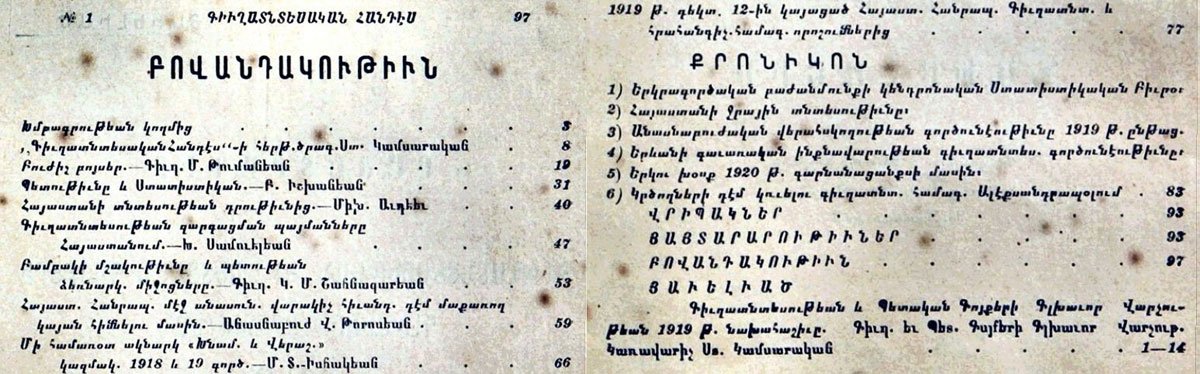 № 1 ԳԻՒՂԱՏՆՏԵՍԱԿԱՆ ՀԱՆԴԷՍ 97
ԲՈՎԱՆԴԱԿՈՒԹԻՒՆ
Խմբագրութեան կողմից . . . . . . . 3
„Գիւղատնտեսական Հանդէս“-ի հերթ. ծրագ. Ստ. Կամսարական . 8
Բուժիչ բոյսեր.—Գիւղ. Մ. Թումանեան . . . . 19
Պետութիւնը և Ստատիստիկան.—Բ. Իշխանեան . . . 31
Հայաստանի տնտեսութեան դրութիւնից.—Միխ. Աւդեեւ . . 40
Գիւղատնտեսութեան զարգացման պայմանները
Հայաստանում.—Խ. Սամուէլեան . . . . 47
Բամբակի մշակութիւնը և պետութեան
ձեռնարկ. միջոցները.—Գիւղ. Կ. Մ. Շահնազարեան . . 53
Հայաստ. Հանրապ. մէջ անասուն. վարակիչ հիւանդ. դէմ մաքառող
կայան հիմնելու մասին.—Անասնաբուժ Վ. Թորոսեան . . . 59
Մի համառօտ ակնարկ «Խնամ. և Վերաշ.»
կազմակ. 1918 և 19 գործ.—Մ. Տ.-Իսահակեան . . . 66
1919 թ. դեկտ. 12-ին կայացած Հայաստ. Հանրապ. Գիւղատնտ. և
հրահանգիչ. համագ. որոշումներից . . . . . 77
ՔՐՈՆԻԿՈՆ
1) Երկրագործական բաժանմունքի կենդրոնական Ստատիստիկական Բիւրօ:
2) Հայաստանի Ջրային տնտեսութիւնը:
3) Անասնաբուժական վերահսկողութեան գործունէութիւնը 1919 թ. ընթաց.
4) Երևանի գաւառական ինքնավարութեան գիւղատնտես. գործունէութիւնը:
5) Երկու խօսք 1920 թ. գարնանացանքսի մասին:
6) Կրծողների դէմ կռւելու գիւղատնտ. համագ. Ալէքսանդրապօլում . 83
ՎՐԻՊԱԿՆԵՐ . . . . . . 93
ՅԱՅՏԱՐԱՐՈՒԹԻՒՆԵՐ . . . . . 93
ԲՈՎԱՆԴԱԿՈՒԹԻՒՆ . . . . . 97
ՅԱՒԵԼԻԱԾ
Գիւղատնտեսութեան և Պետական Գոյքերի Գլխաւոր Վարչու-
թեան 1919 թ. նախահաշիւը. Գիւղ. եւ Պետ. Գոյքերի Գլխաւոր Վարչութ.
Կառավարիչ Ստ. Կամսարական . . . . . 1—14